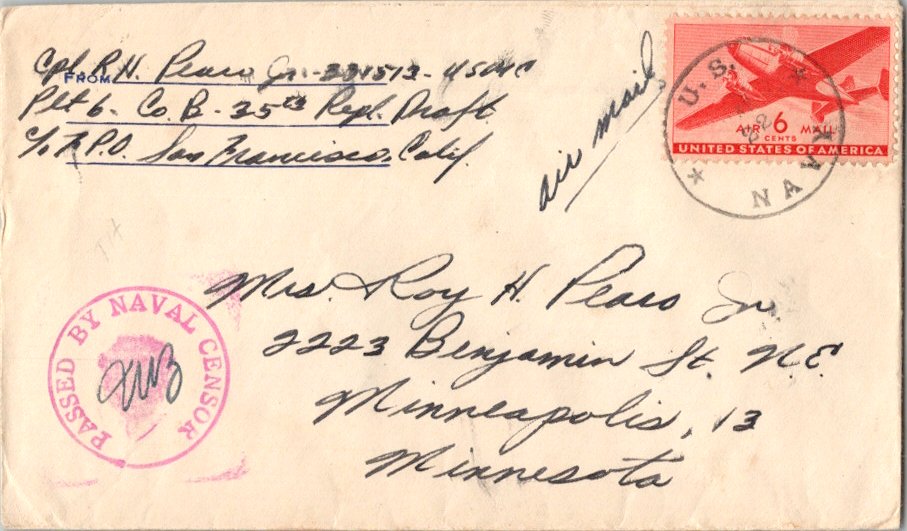 FROM
Cpl. R. H. Pearo Jr. - 331513 - USMC
Plt 6 - Co. B - 35th Repl. Draft
c/o F.P.O. San Francisco, Calif.
air mail
U.S. NAVY
AIR 6 MAIL
CENTS
UNITED STATES OF AMERICA
Mrs. Roy H. Pearo Jr.
2223 Benjamin St. N.E.
Minneapolis, 13
Minnesota
PASSED BY NAVAL CENSOR